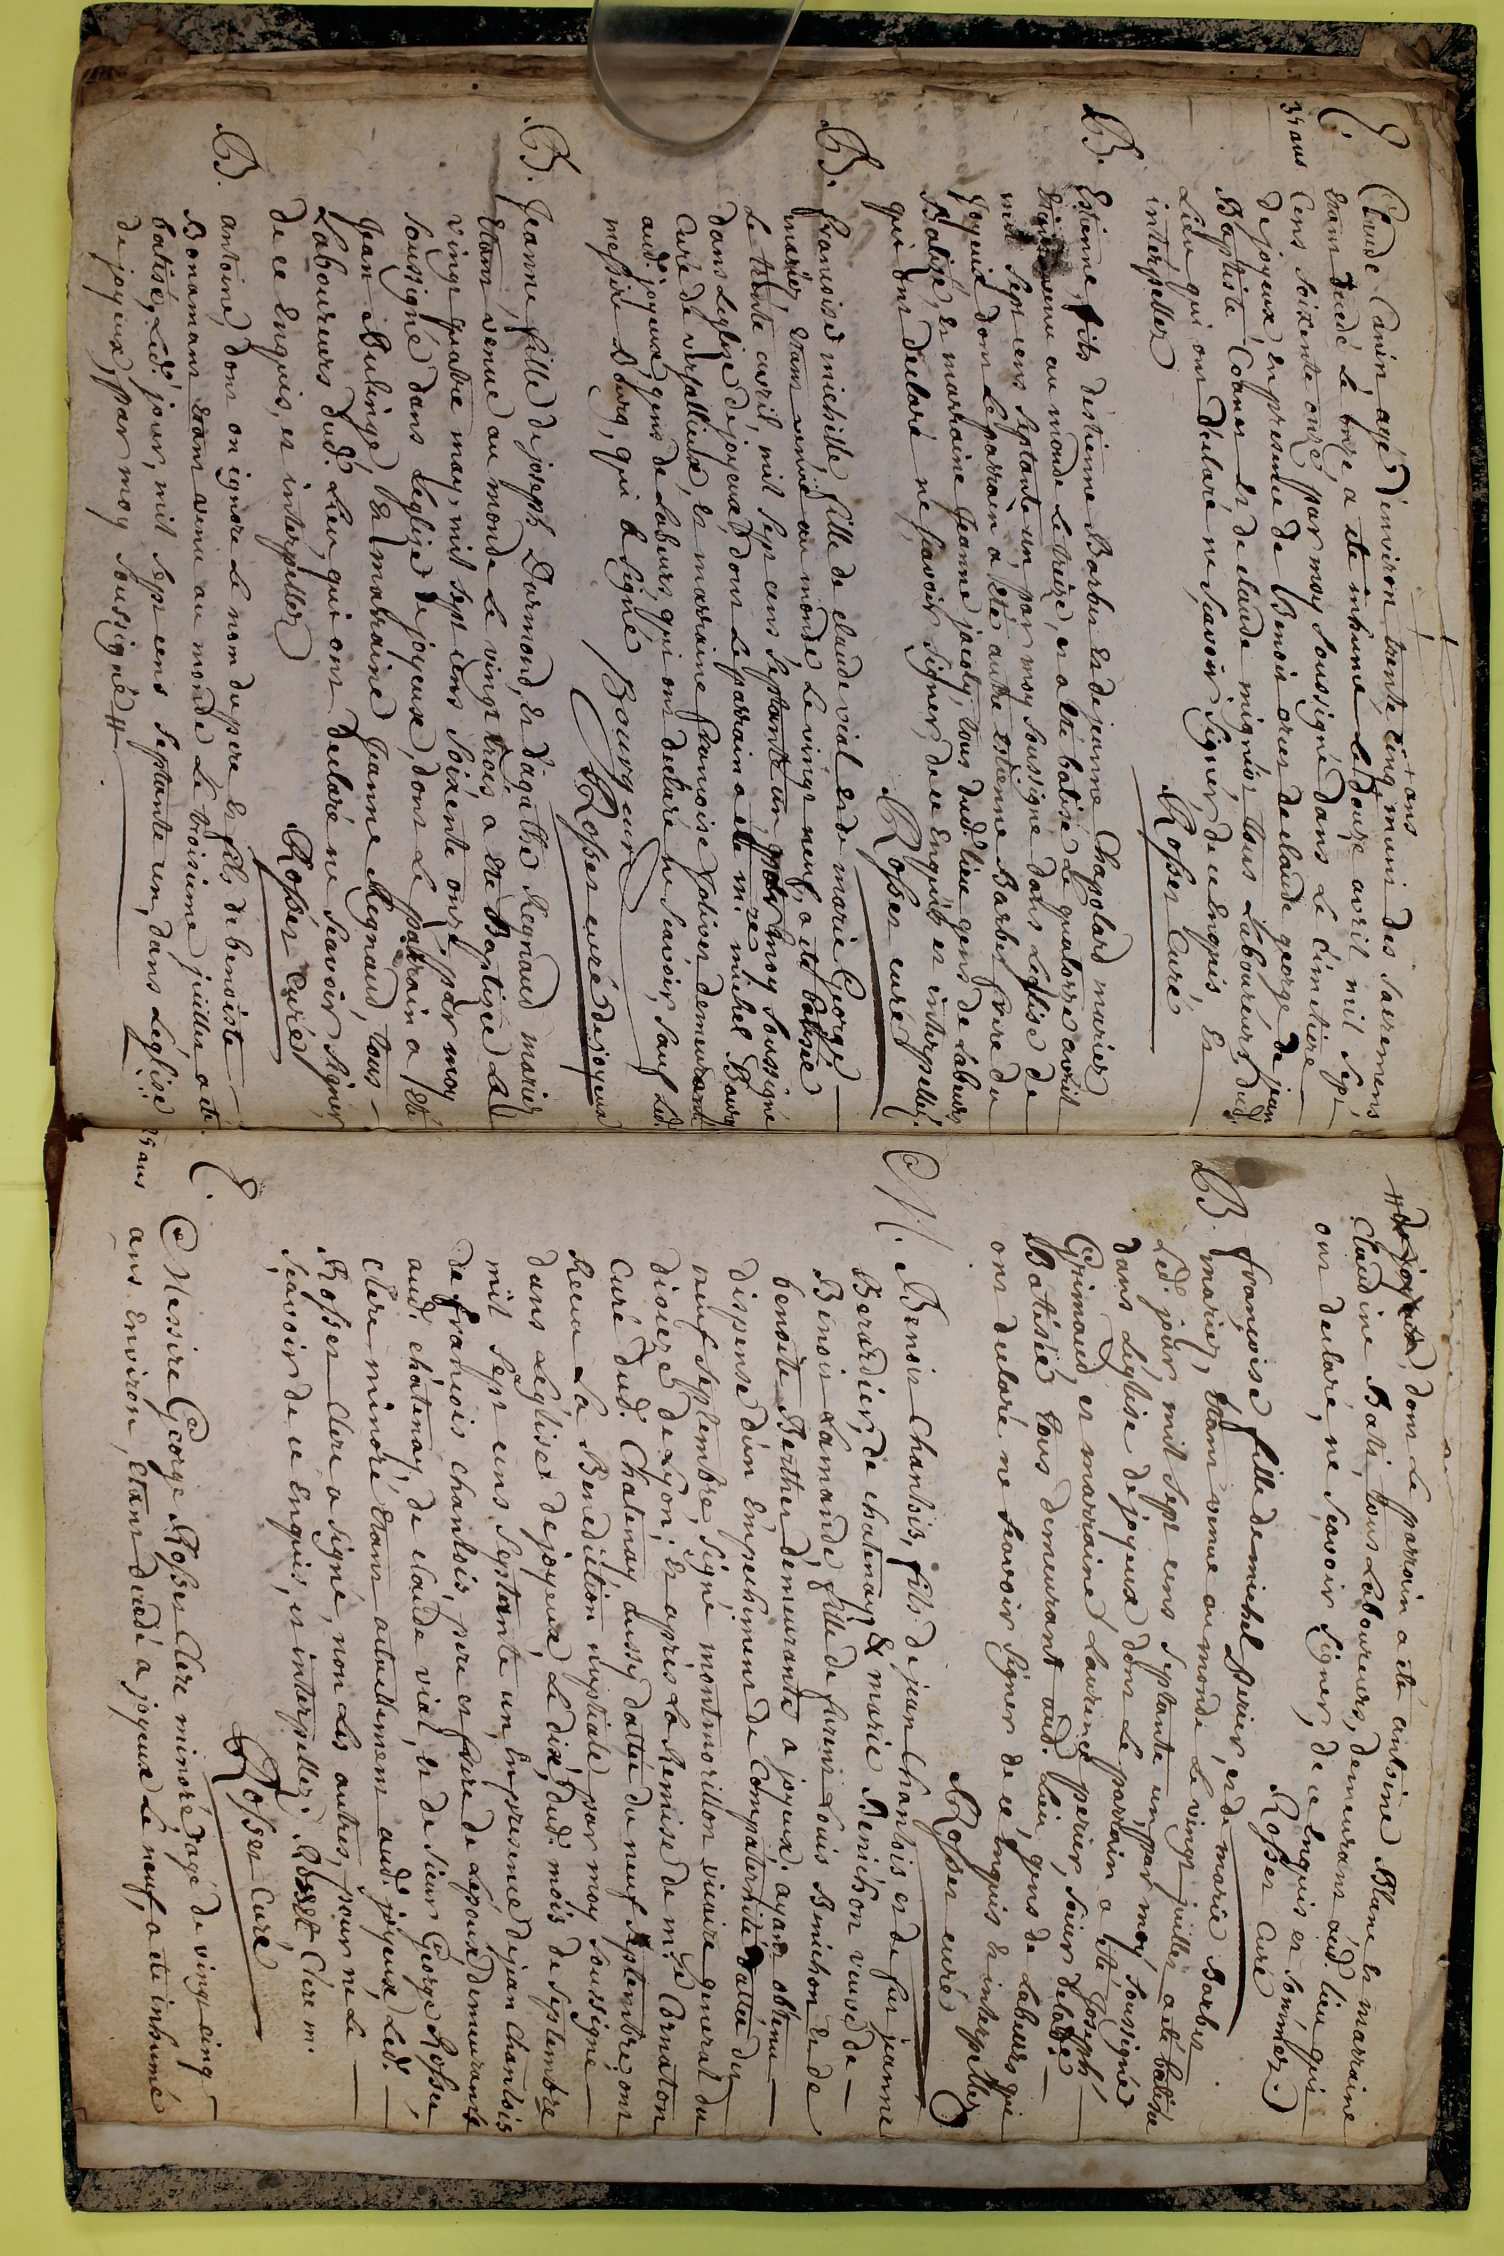 E.
35 ans
Claude Canin agé d'environ trente cinq ans, muni des sacremens
étant décédé le onze a eté inhumé le douze avril mil sept
cens soixante onze par moy soussigné dans le cimetiere
de joyeux en presence de Benoit ores de claude george de jean
Baptiste Cohner et de claude mignot tous Laboureurs dud.
Lieu qui ont déclaré ne sçavoir signer, de ce Enquis et
interpellez
Rosset Curé
B.
Estienne fils d'estienne Barbet et de jeanne Chapolard mariez
étant venu au monde le treize, et a eté batisé le quatorze avril
mil sept cens septante un par moy soussigné dans l'église de
joyeux dont le parrain a eté autre estienne Barbet frere du
Batisé, et marraine jeanne jacoly, tous dud. lieu gens de Labeurs
qui ont declaré ne sçavoir signer, de ce Enquis et interpellez.
Rosset curé
B.
francoise michelle fille de claude vial et de marie George
mariez, étant venue au monde le vingt neuf, a eté batisée
le trente avril, mil sept cens septante un, par moy soussigné
dans l'église de joyeux, dont le parrain a eté mre michel Bourg
Curé de versallieux, et marraine francoise joliver demeurant
aud. joyeux gens de Labeurs, qui ont declaré ne sçavoir, sauf led.
messire Bourg, qui a signé
Bourg curé
Rosset curé de joyeux
B.
Jeanne fille de joseph Darmond, et d'agathe Regnaud mariez
étant venue au monde le vingt trois a eté Baptisée le
vingt quatre may, mil sept cens soixente onze, par moy
soussigné dans l'église de joyeux, dont le parrain a eté
jean Bulinge, et marraine jeanne Regnaud, tous
Laboureurs dud. Lieu, qui ont declaré ne sçavoir signer
de ce Enquis, et interpellez
Rosset Curé
B.
antoine, dont on ignore le nom du pere et fils de benoiste
Bonamant étant venu au monde le troisieme juillet a eté
batisé, led. jour, mil sept cens septante un, dans l'église
de joyeux, par moy soussigné #
# de joyeux, dont le parrain a eté antoine Blanc et marraine
Claudine Bati, tous Laboureurs, demeurans aud. lieu qui
ont declaré, ne sçavoir signer, de ce Enquis et sommez.
Rosset Curé
B.
françoise fille de michel perier, et de marie Barbet
mariez, étant venue au monde le vingt juillet a eté batisée
led. jour mil sept cens septante un, par moy soussigné
dans l'église de joyeux dont le parrain a eté joseph
Grimaud, et marraine Laurence perier, soeur de la de
Batisée tous demeurant aud. lieu, gens de Labeurs qui
ont declaré ne sçavoir signer de ce Enquis et interpellez
Rosset curé
M.
Benoit Chanlois, fils de jean Chanlois et de feu jeanne
Berardier, de chatenay & marie Benichon veuve de
Benoit Lamande, fille de furent Louis Benichon et de
benoite Berthet demeurante a joyeux; ayant obtenu
dispense d'un Empechement de Compaternité dattée du
neuf septembre, signé montmorillon vicaire general du
dioceze de Lyon; et après la Remise de mre Cornaton
curé dud. Chatenay, aussy dattée du neuf septembre, ont
Receu la Benediction nuptiale par moy soussigné
dans l'église de joyeux le dix, dud. mois de septembre
mil sept cens septante un, En presence de jean Chanlois
de francois chanlois, pere et frere de l'epoux demeurants
aud. chatenay, de claude vial, et de sieur George Rosset
clerc minoré étant actuellement aud. joyeux, Led.
Rosset clerc a signé, non les autres, pour ne le
sçavoir de ce enquis, et interpellez. Rosset Clerc m.
Rosset Curé
E.
25 ans
Messire George Rosset Clerc minoré agé de vingt cinq
ans Environ, étant decedé a joyeux le neuf, a eté inhumé